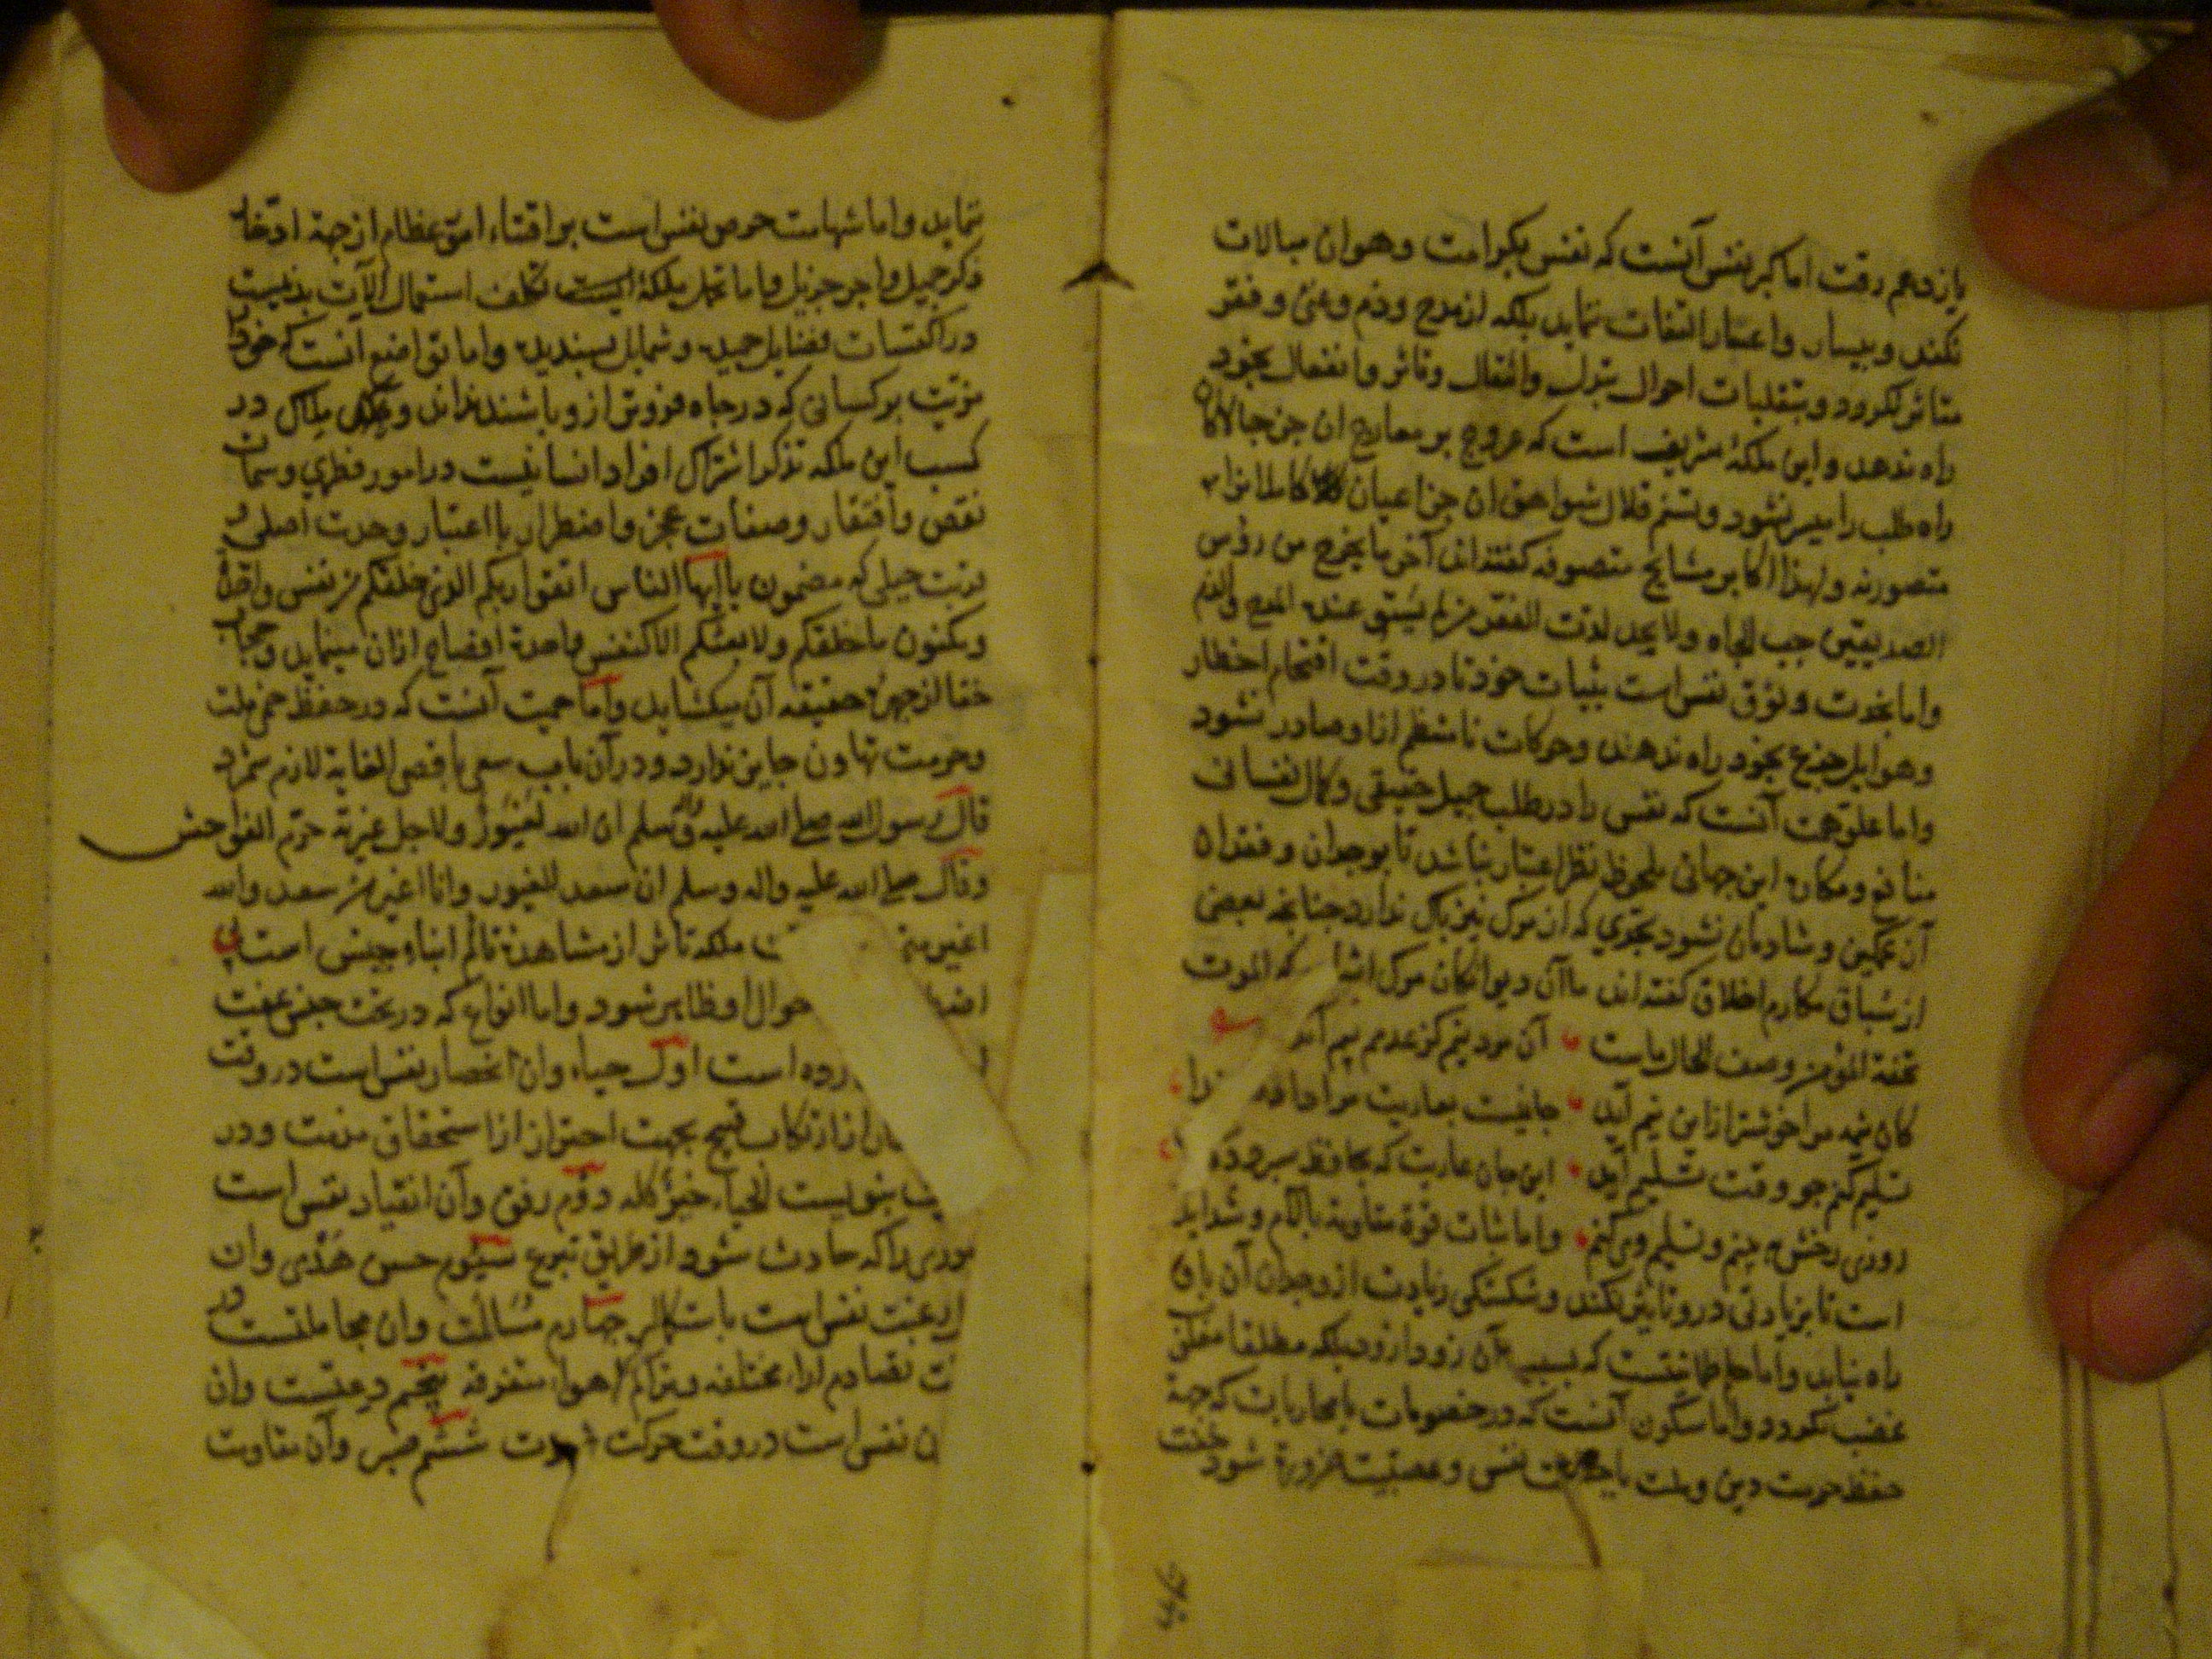 یازدهم رقت اما کبر نفس آنست که نفس بکرامت وهوان مبالات
نکند و بیسار واعسار التفات ننماید بلکه از مدح وذم وغنی و فقر
متاثر نکردد و بتقلبات احوال تبدل وانتقال و تاثر وانفعال بخود
راه ندهد واین ملکهٔ شریف است که عروج بر معارج ان جز
راه طلب را میسر نشود و تسنم قلال شواهق ان جز اعیان کاملانرا
متصور نه ولهذا اکابر مشایخ متصوفه کفته‌اند آخر ما یخرج من رؤس
الصدیقین حب الجاه ولا یجد لذت الفقر من لم یستو عنده المدح والذم
واما نجدت وثوق نفس است بثبات خود تا در وقت اقتحام اخطار
وهوایل جزع بخود راه ندهد وحرکات نا منتظم ازا وصادر نشود
واما علو همت آنست که نفس را در طلب جمیل حقیقی وکمال نفسانی
منافع ومکاره این جهانی ملحوظ نظر اعتبار نباشد تا بوجدان و فقدان
آن غمکین و شادمان نشود بحدی که از مرک نیز باک ندارد چنانچه بعضی
از سباق مکارم اخلاق کفته‌اند ما آن دیوانکان مرک که الموت
تحفة المؤمن وصف الحال ماست آن مرد نیم کز عدمم بیم آید
کان نیمه مرا خوشتر ازین نیم آید جانیست بعاریت مرا داده
تسلیم کنم چو وقت تسلیم آید این جان عاریت که بحافظ سپرد
روزی رخش ببینم و تسلیم وی کنم واما ثبات قوة مقاومة با آلام و شداید
است تا بزیادتی درو تاثیر نکند و شکستکی زیادت از وجدان آن باو
راه نیابد واما حلم طمانینتست که بسبب آن زود از و بلکه مطلقا مغلوب
غضب نکردد واما سکون آنست که در خصومات یا محاربات که جهة
حفظ حرمت دین و ملت یا نفس و عصبیت ضرورة شود خفت
ننماید
نماید واما شهامت حرص نفس است بر اقتناء امور عظام از جهة ادخار
ذکر جمیل واجر جزیل واما تحمل ملکهٔ ایست تکلف استعمال آلات بدنیست
در اکتساب فضایل حمیده و شمایل پسندیده واما تواضع آنست که خود را
مزیت بر کسانی که در جاه فروتر ازو باشند نداند و ملاک در
کسب این ملکه تذکر اشتراک افراد انسانیست در امور فطری وسمات
نقص وافتقار وصفات عجز واضطرار با اعتبار وحدت اصلی و
جبلی که مضمون یا ایها الناس اتقوا ربکم الذی خلقکم من نفس واحدة
ومکنون ما خلقکم ولا بعثکم الا کنفس واحدة افصاح ازان مینماید وحجاب
خفا از جهرهٔ حقیقه آن میکشاید واما حمیت آنست که در حفظ حمی ملت
وحرمت تهاون جایز ندارد ودر آن باب سعی باقصی الغایة لازم شمرد
قال رسول الله صلی الله علیه واله وسلم ان الله لغیور ولاجل غیرته حرم الفواحش
وقال صلی الله علیه واله وسلم ان سعد الغیور وانا اغیر من سعد والله
اغیر منی ملکه تاثر از مشاهدهٔ تالم ابناء جنس است بی
احوال او ظاهر شود واما انواع که در تحت جنس عفت
است اول حیاء وان انحصار نفس است در وقت
از ارتکاب قبیح بجهت احتراز ازا ستحقاق مذمت ودر
نبویست الحیاء خیر کله دوم رفق وآن انقیاد نفس است
موری را که حادث شود از طریق تبرع سیوم حسن هدی وان
رغبت نفس است باستکمال چهارم مسالمت وان مجاملتست در
تصادم اراء مختلفه وتراکم اهواء متفرقه پنجم دعتست وان
نفس است در وقت حرکت ششم صبر وآن مقاومت